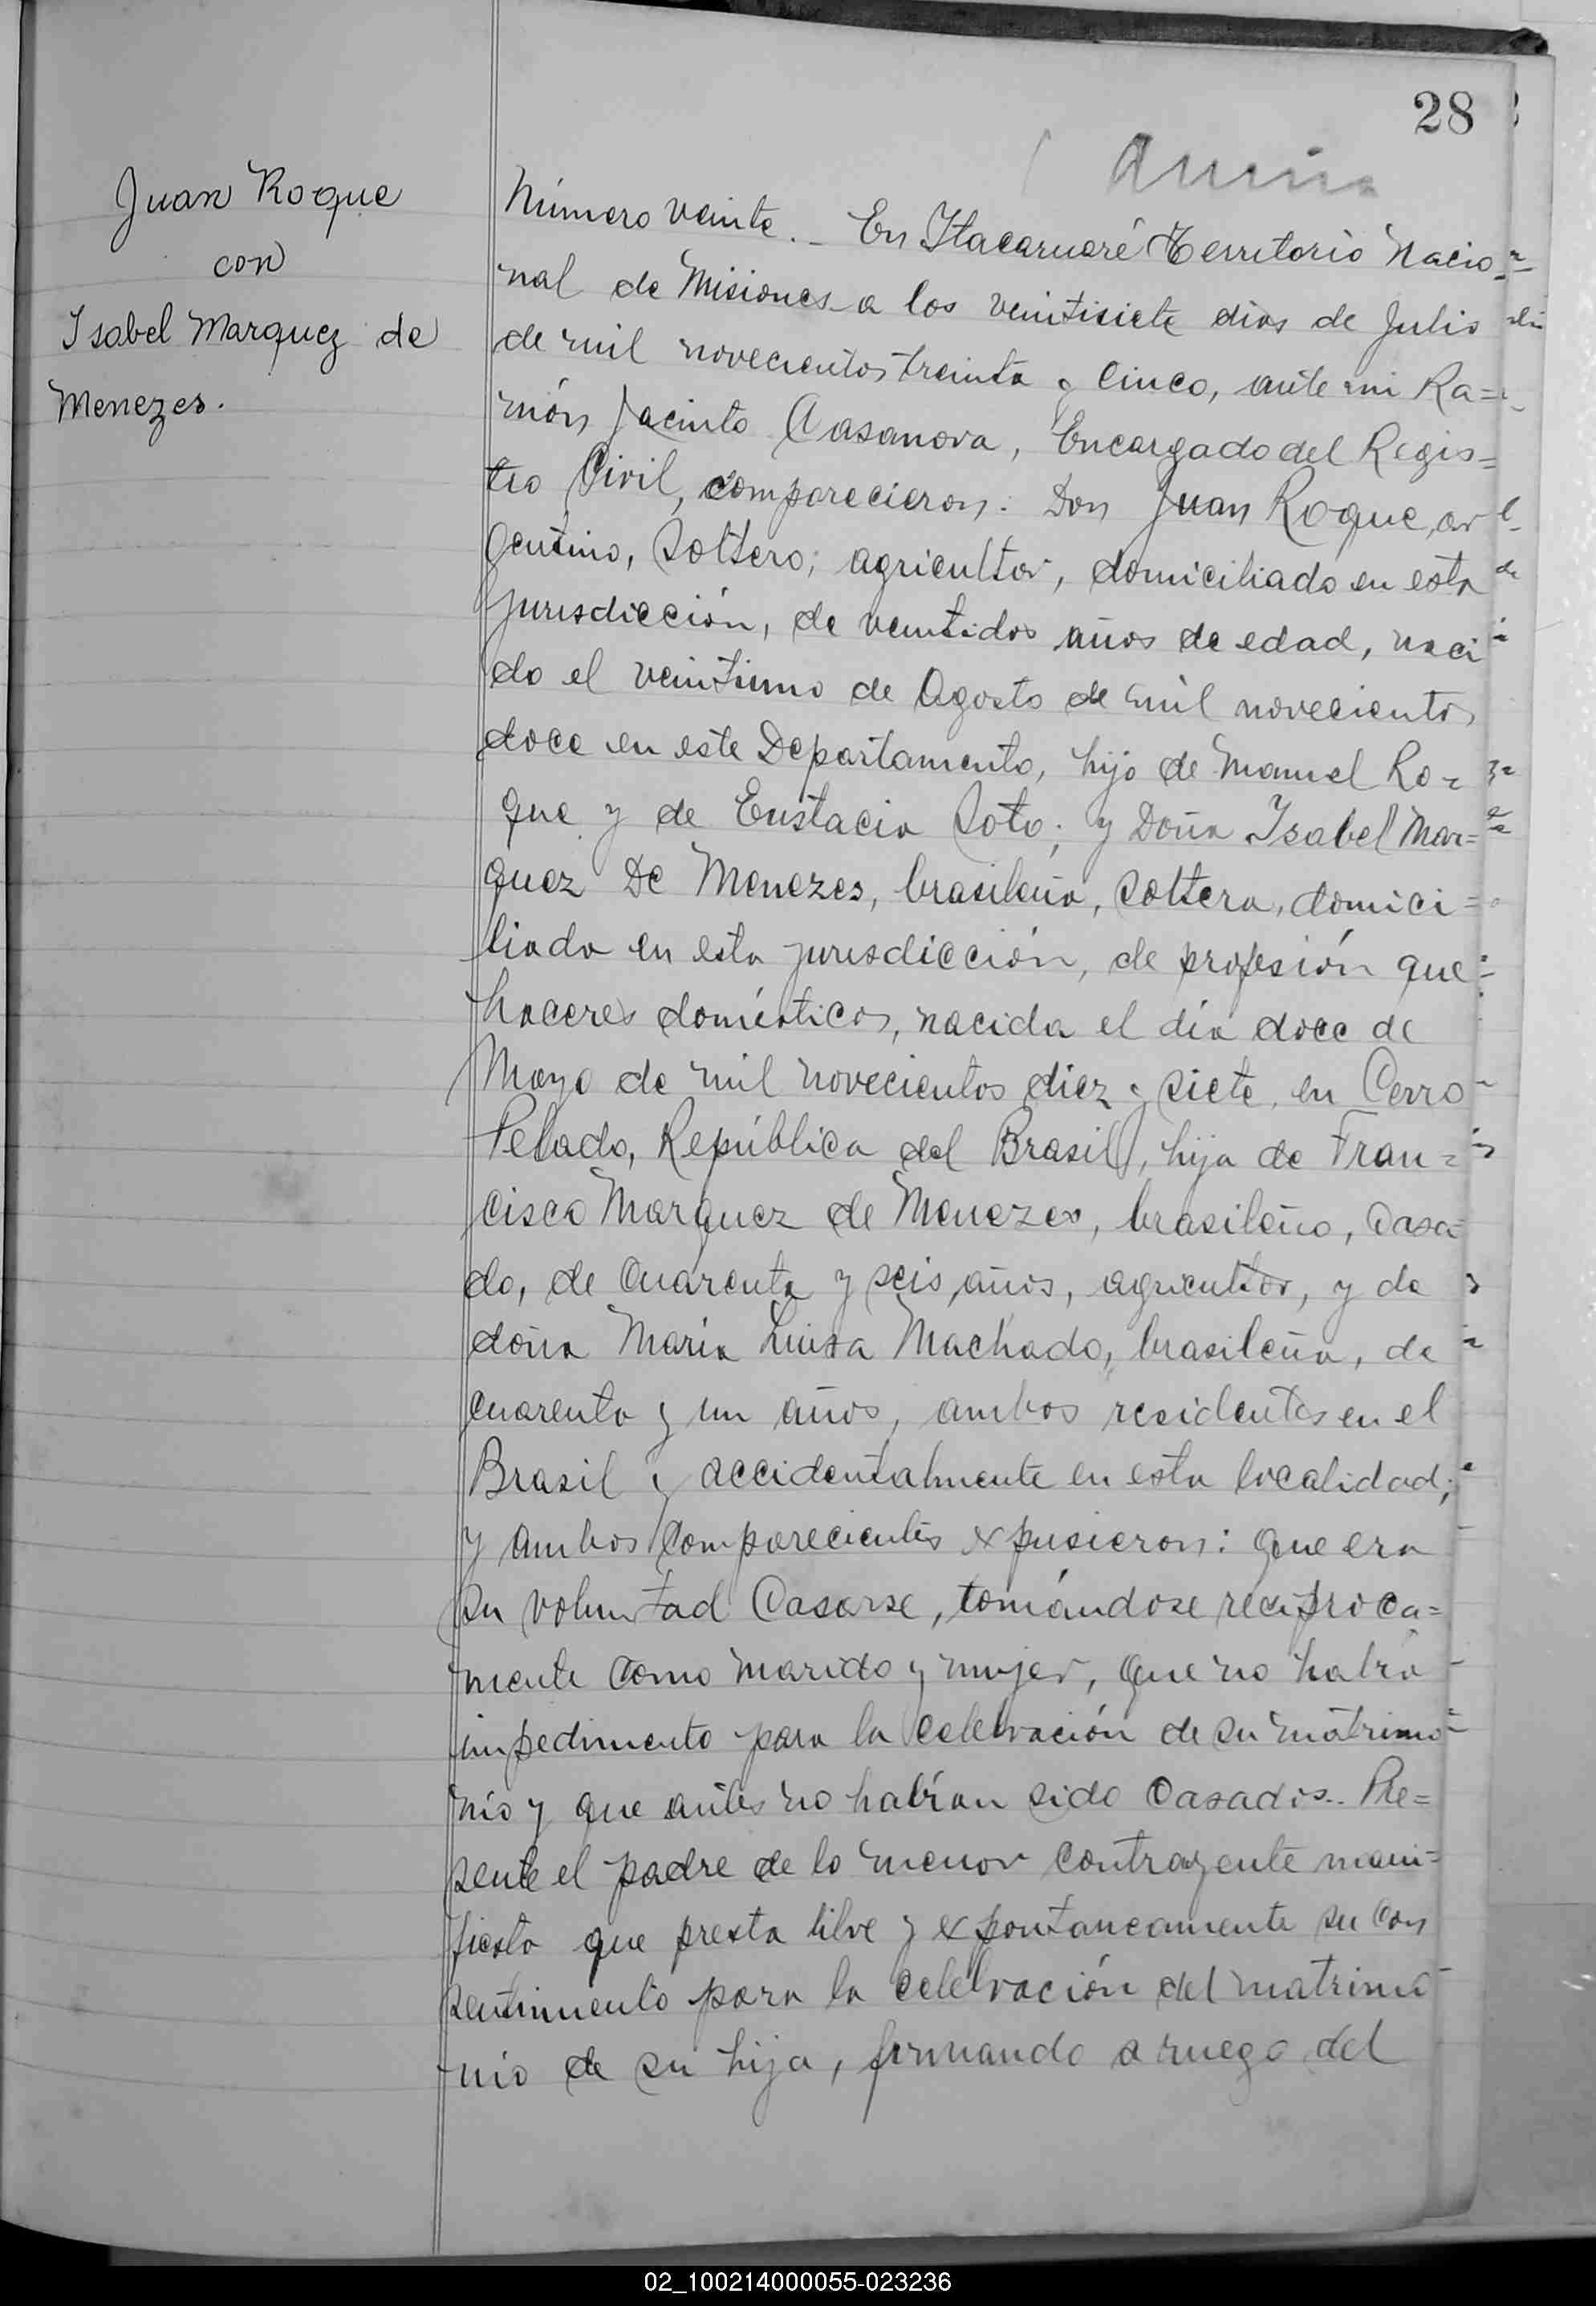 28
Juan Roque
con
Isabel Marquez de
Menezes.
Número veinte.- En Itacaruaré Territorio Nacio-
nal de Misiones a los veintisiete dias de Julio
de mil novecientos treinta y cinco, ante mi Ra=
món Jacinto Casanova, Encargado del Regis=
tro Civil, comparecieron: Don Juan Roque, ar
gentino, soltero; agricultor, domiciliado en esta
jurisdicción, de veintidos años de edad, naci
do el veintiuno de Agosto de mil novecientos
doce en este Departamento, hijo de Manuel Ro=
que y de Eustacia Soto; y Doña Isabel Mar=
quez De Menezes, brasileña, soltera, domici=
liada en esta jurisdicción, de profesión que
haceres domésticos, nacida el día doce de
Mayo de mil novecientos diez y siete, en Cerro
Pelado, República del Brasil, hija de Fran=
cisco Marquez de Menezes, brasileño, casa=
do, de cuarenta y seis años, agricultor, y de
doña María Luisa Machado, brasileña, de
cuarenta y un años, ambos residentes en el
Brasil y accidentalmente en esta localidad;
y ambos comparecientes expusieron: que era
su voluntad casarse, tomándose reciproca=
mente como marido y mujer, que no habia
impedimento para la celebración de su matrimo=
nio y que antes no habían sido casados.. Pre=
sente el padre de la menor contrayente mani=
fiesta que presta libre y expontaneamente su con
sentimiento para la celebración del matrimo
nio de su hija, firmando a ruego del
02_100214000055-023236